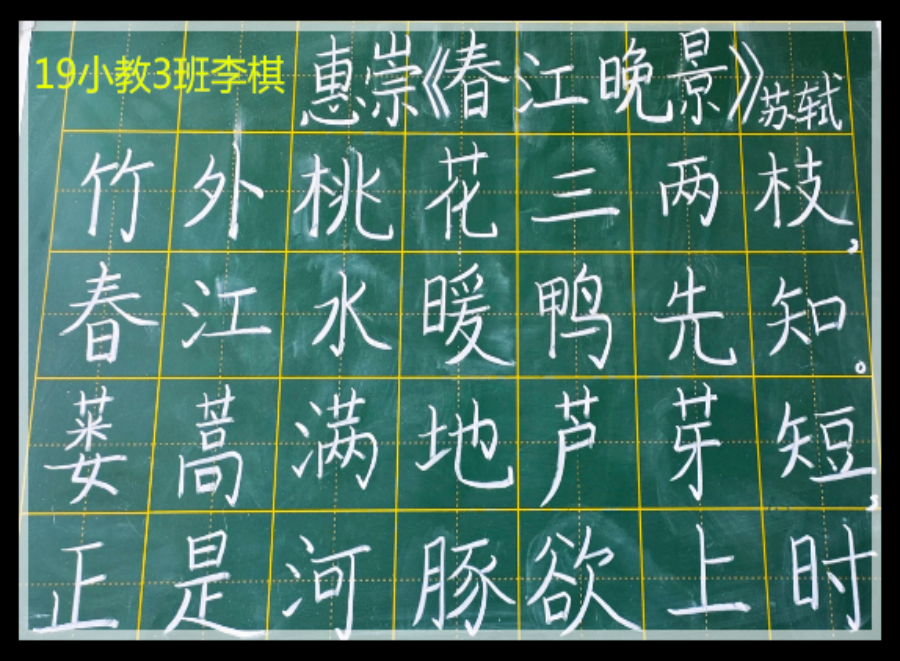 19小教3班李棋
惠崇《春江晚景》苏轼
竹外桃花三两枝，
春江水暖鸭先知。
蒌蒿满地芦芽短，
正是河豚欲上时